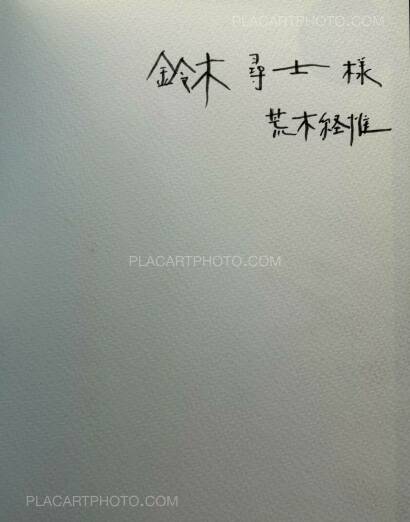 PLACARTPHOTO.COM
鈴木 尋士 様
荒木経惟
PLACARTPHOTO.COM
PLACARTPHOTO.COM